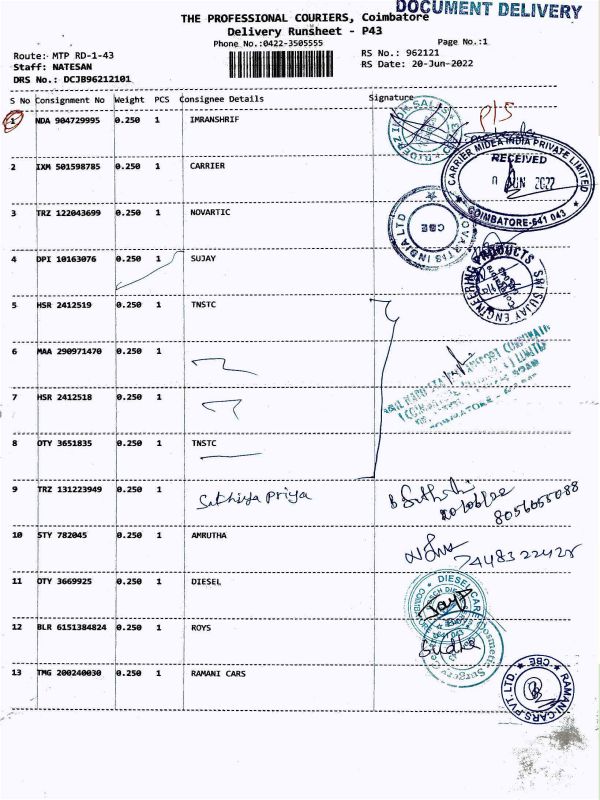 DOCUMENT DELIVERY
THE PROFESSIONAL COURIERS, Coimbatore
Delivery Runsheet - P43
Phone No.:0422-3505555
Page No.:1
Route: MTP RD-1-43
RS No.: 962121
Staff: NATESAN
RS Date: 20-Jun-2022
DRS No.: DCJB96212101
S No Consignment No Weight PCS Consignee Details Signature
1 NDA 904729995 0.250 1 IMRANSHRIF
P/S
CARRIER MIDEA INDIA PRIVATE LIMITED
RECEIVED
JUN 2022
COIMBATORE-641 043
2 IXM 501598785 0.250 1 CARRIER
3 TRZ 122043699 0.250 1 NOVARTIC
NOVARTIS INDIA LTD
CBE
4 DPI 10163076 0.250 1 SUJAY
SRI SUJAY ENGINEERING PRODUCTS
5 HSR 2412519 0.250 1 TNSTC
6 MAA 290971470 0.250 1
7 HSR 2412518 0.250 1
8 OTY 3651835 0.250 1 TNSTC
9 TRZ 131223949 0.250 1 Sathiya priya
20/06/22
8056655088
10 STY 782045 0.250 1 AMRUTHA
7448322428
11 OTY 3669925 0.250 1 DIESEL
DIESEL CARE
12 BLR 6151384824 0.250 1 ROYS
Cosmetic Surgery
Sudha
13 TMG 200240030 0.250 1 RAMANI CARS
RAMANI CARS PVT. LTD.
CBE